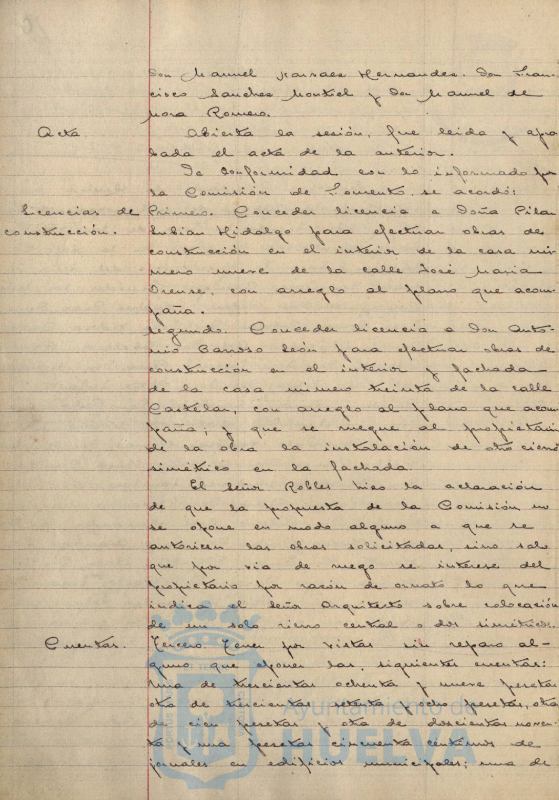 Don Manuel Narváez Hernández. Don Fran-
cisco Sánchez Montiel y Don Manuel de
Mora Romero.
Acta. Abierta la sesión, fue leída y apro
bada el acta de la anterior.
De conformidad con lo informado por
la Comisión de Fomento, se acordó:
Licencias de construcción.
Primero. Conceder licencia a Doña Pilar
Rubian Hidalgo para efectuar obras de
construcción en el interior de la casa nú-
mero nueve de la calle José María
Orense, con arreglo al plano que acom
paña.
Segundo. Conceder licencia a Don Anto-
nio Barroso León para efectuar obras de
construcción en el interior y fachada
de la casa número treinta de la calle
Castelar, con arreglo al plano que acom
paña; y que se ruegue al propietario
de la obra la instalación de otro cierro
simétrico en la fachada.
El Señor Robles hizo la aclaración
de que la propuesta de la Comisión no
se opone en modo alguno a que se
autoricen las obras solicitadas, sino solo
que por vía de ruego se interese del
propietario por razón de ornato lo que
indica el Señor Arquitecto sobre colocación
de un solo cierro central o dos simétricos.
Cuentas. Tercero. Tener por vistas sin reparo al-
guno que oponer las siguientes cuentas:
Una de trescientas ochenta y nueve pesetas
otra de trescientas setenta y ocho pesetas, otra
de cien pesetas y otra de doscientas noven-
ta y una pesetas cincuenta céntimos de
jornales en edificios municipales; una de
Ayuntamiento de
HUELVA